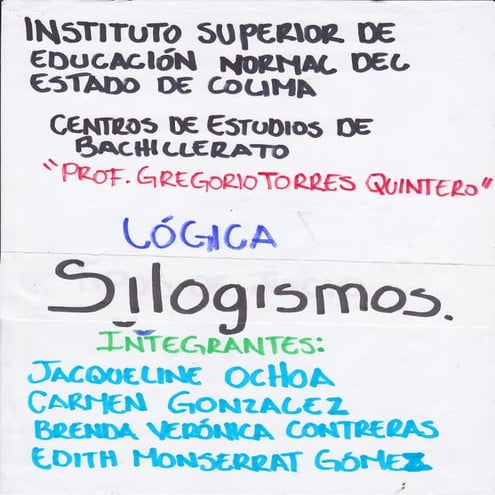 INSTITUTO SUPERIOR DE
EDUCACIÓN NORMAL DEL
ESTADO DE COLIMA
CENTROS DE ESTUDIOS DE
BACHILLERATO
"PROF. GREGORIO TORRES QUINTERO"
LÓGICA
Silogismos.
INTEGRANTES:
JACQUELINE OCHOA
CARMEN GONZALEZ
BRENDA VERÓNICA CONTRERAS
EDITH MONSERRAT GÓMEZ